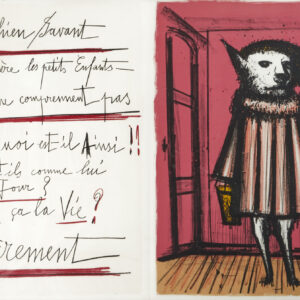 hien Savant
ère les petits Enfants—
ne comprennent pas
noi est il Ainsi !!
ils comme lui
Jour ?
ça la Vie ?
rement